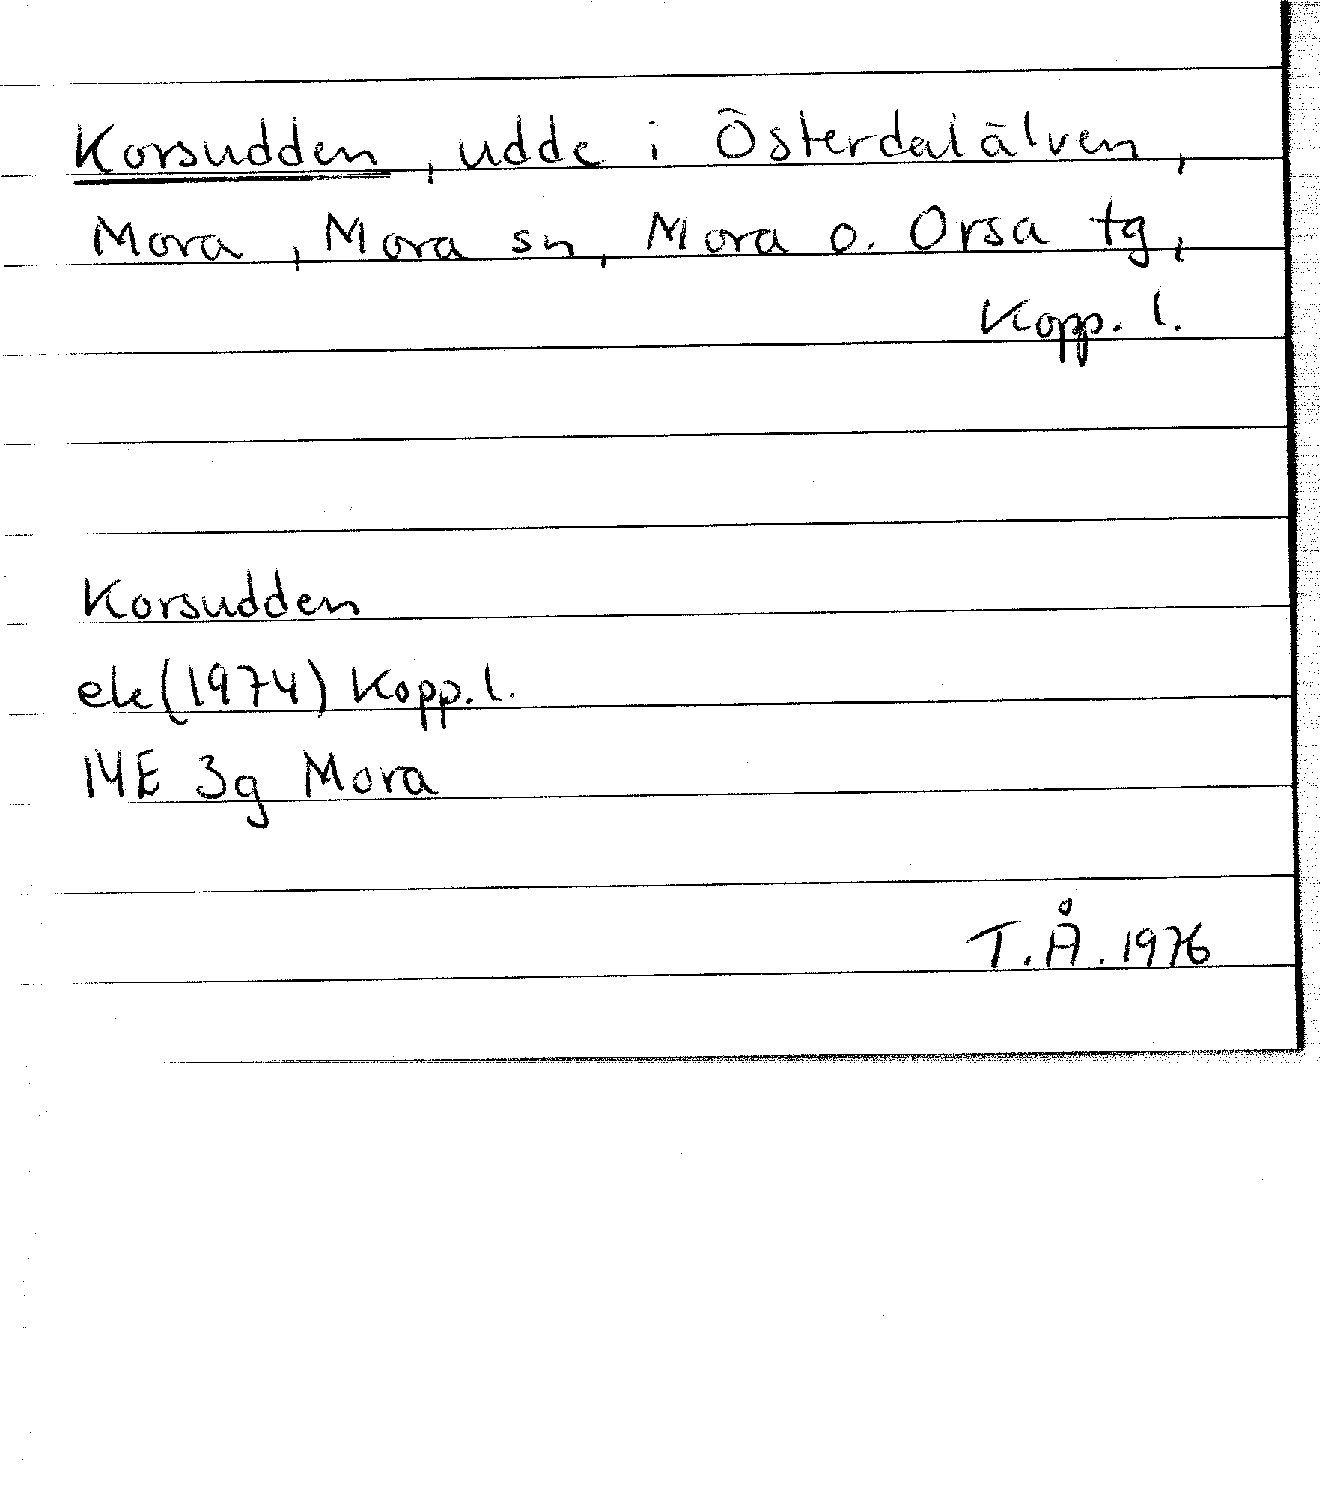 Korsudden, udde i Österdalälven,
Mora, Mora sn, Mora o. Orsa tg,
Kopp. l.
Korsudden
ek(1974) Kopp. l.
14E 3g Mora
T.Å. 1976